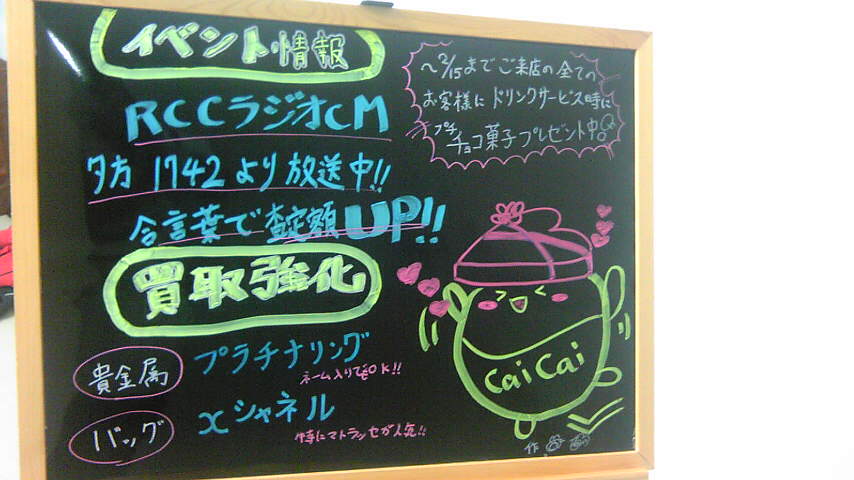 イベント情報
RCCラジオCM
夕方 1742より放送中!!
合言葉で査定額UP!!
～2/15までご来店の全ての
お客様にドリンクサービス時に
プチチョコ菓子プレゼント中。
買取強化
貴金属 プラチナリング
ネーム入りでもOK!!
バッグ xシャネル
特にマトラッセが人気!!
CaiCai
作